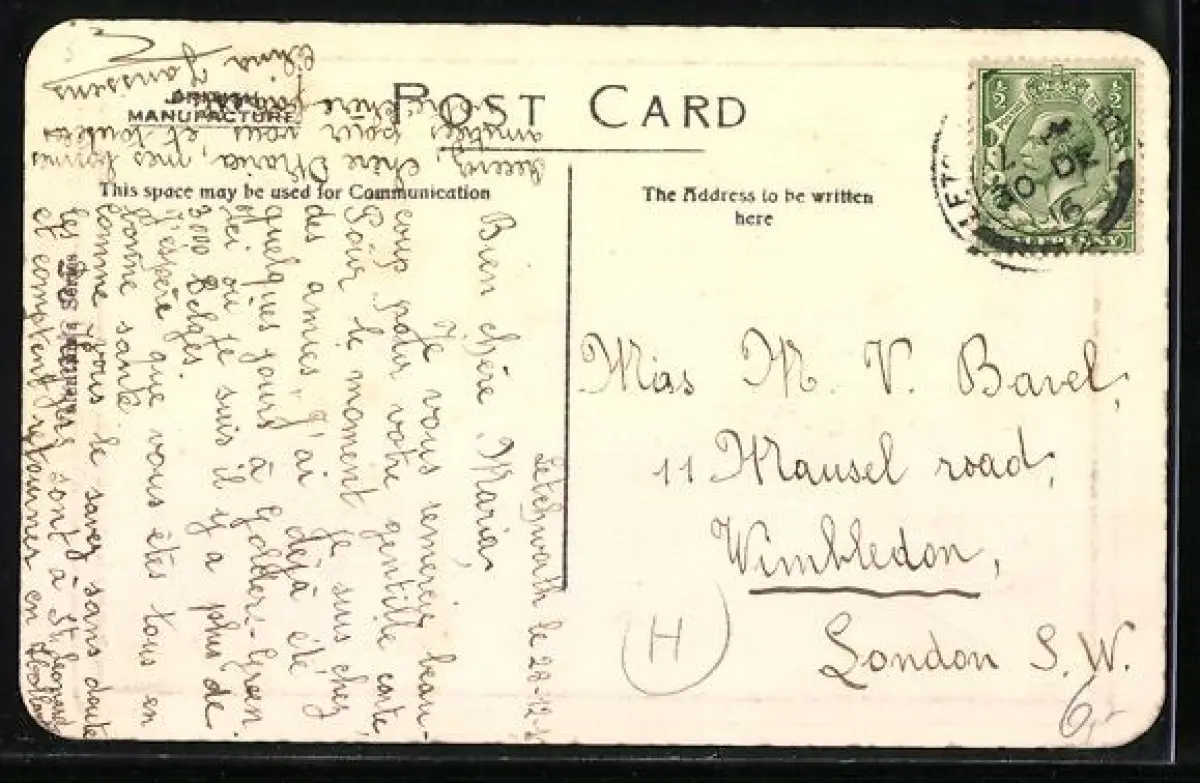 POST CARD
BRITISH
MANUFACTURE
This space may be used for Communication
The Address to be written
here
Miss M. V. Bavel,
11 Mansel road,
Wimbledon,
London S. W.
H
Letchworth le 28-12-
Bien chère Maria,
Je vous remercie beau-
coup pour votre gentille carte,
Pour le moment je suis chez
des amies, j'ai déjà été
quelques jours à Golders-Green
ici où je suis il y a plus de
3000 Belges.
J'espère que vous êtes tous en
bonne santé.
comme vous le savez sans doute
les sont à St. Leonard
et comptent retourner en
chère Maria, mes bonnes
amitiés pour vous, et toute
chère
Janssens
½ ½
DE
16